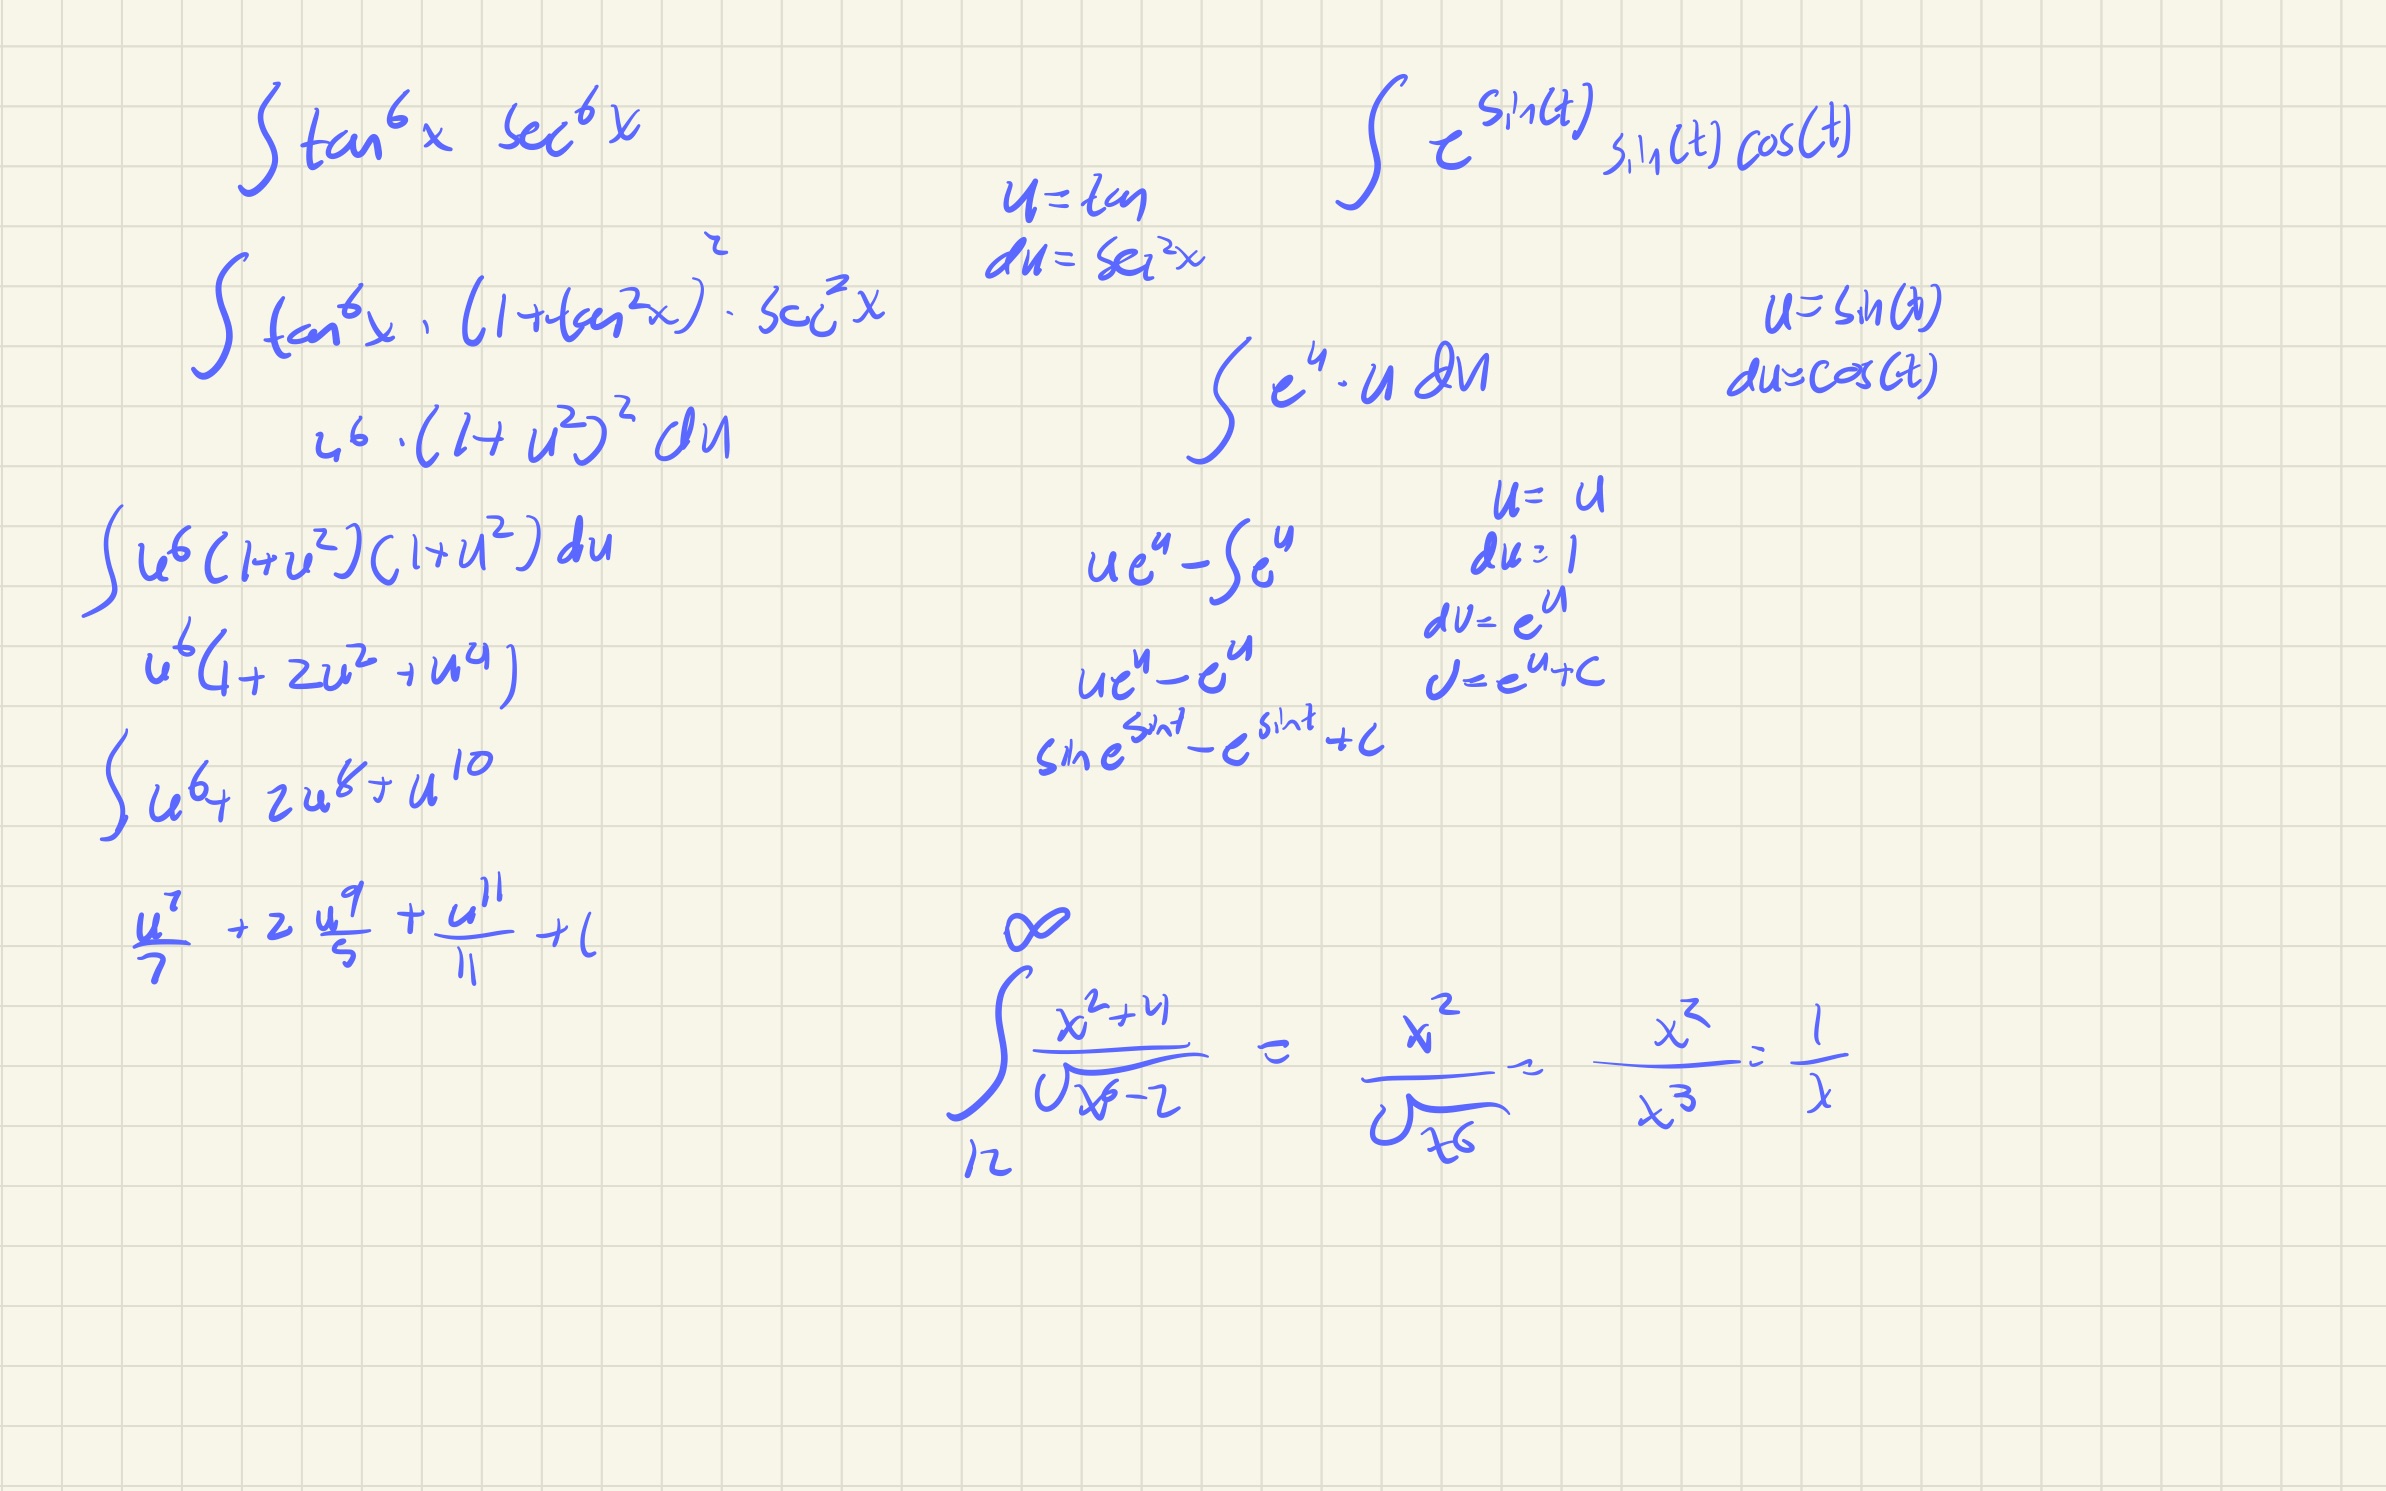 ∫ tan⁶x sec⁶x
∫ tan⁶x · (1+tan²x)² · sec²x
u = tan
du = sec²x
u⁶ · (1+u²)² du
∫ u⁶(1+u²)(1+u²) du
u⁶(1+2u²+u⁴)
∫ u⁶+2u⁸+u¹⁰
u⁷/7 + 2 u⁹/9 + u¹¹/11 + C
∫ e^sin(t) sin(t) cos(t)
u = sin(t)
du = cos(t)
∫ e^u · u du
u = u
du = 1
dv = e^u
v = e^u + c
ue^u − ∫e^u
ue^u − e^u
sin e^sint − e^sint + c
∫₁₂^∞ (x²+4)/√(x⁶−2) = x²/√x⁶ = x²/x³ = 1/x